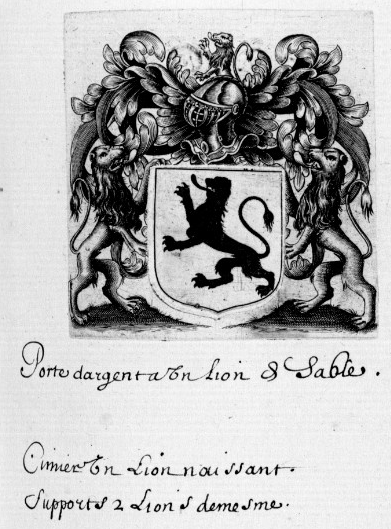 Porte dargent a Un Lion & Sable.
Cimier Un Lion naissant.
Supports 2 Lions demesme.